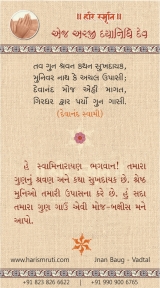 ॥ હરિ સ્મૃતિ ॥
એજ અરજી દયાનિધિ દેવ
તવ ગુન શ્રવન કથન સુખદાયક,
મુનિવર નાથ કે અચલ ઉપાસી;
દેવાનંદ મોજ એહી માગત,
ગિરધર દ્વાર પર્યો ગુન ગાસી.
(દેવાનંદ સ્વામી)
હે સ્વામિનારાયણ ભગવાન! તમારા
ગુણનું શ્રવણ અને કથા સુખદાયક છે. શ્રેષ્ઠ
મુનિઓ તમારી ઉપાસના કરે છે. હું સદા
તમારા ગુણ ગાઉં એવી મોજ-બક્ષીસ મને
આપો.
www.harismruti.com
Jnan Baug - Vadtal
+91 823 826 6622
+91 990 900 6765